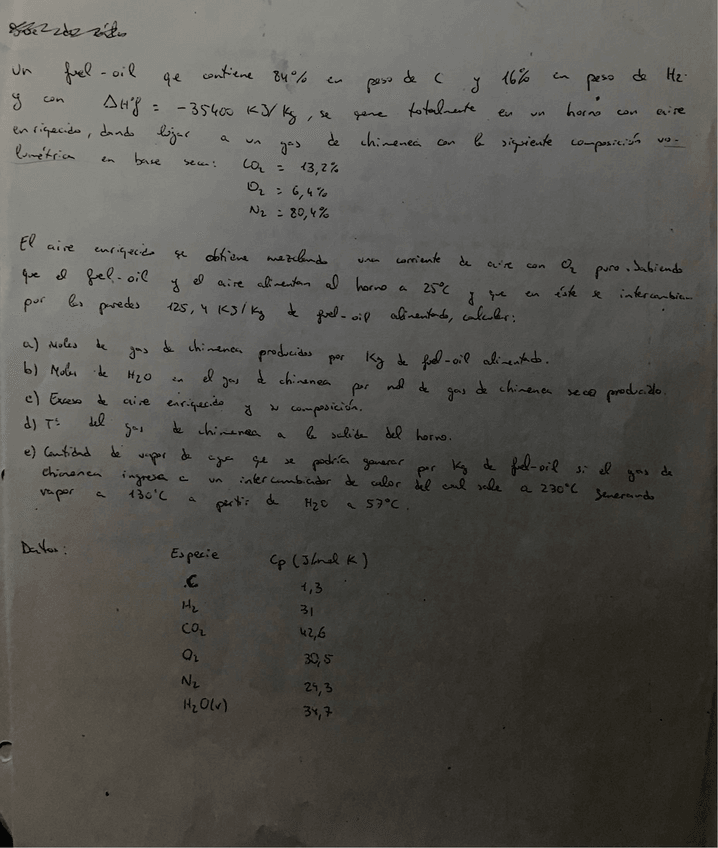 Un fuel-oil qe contiene 84% en peso de C y 16% en peso de H2.
y con ΔHºf = -35400 KJ/Kg, se qema totalmente en un horno con aire
enriqecido, dando lugar a un gas de chimenea con la siguiente composición vo-
lumétrica en base seca: CO2 = 13,2%
O2 = 6,4%
N2 = 80,4%
El aire enriqecido se obtiene mezclando una corriente de aire con O2 puro. Sabiendo
que el fuel-oil y el aire alimentan al horno a 25ºC y que en éste se intercambian
por las paredes 125,4 KJ/Kg de fuel-oil alimentado, calcular:
a) Moles de gas de chimenea producidos por Kg de fuel-oil alimentado.
b) Moles de H2O en el gas de chimenea por mol de gas de chimenea seco producido.
c) Exceso de aire enriqecido y su composición.
d) Tª del gas de chimenea a la salida del horno.
e) Cantidad de vapor de agua qe se podría generar por Kg de fuel-oil si el gas de
chimenea ingresa a un intercambiador de calor del cual sale a 230ºC generando
vapor a 130ºC a partir de H2O a 57ºC.
Datos: Especie Cp (J/mol K)
C 1,3
H2 31
CO2 42,6
O2 30,5
N2 29,3
H2O(v) 34,7